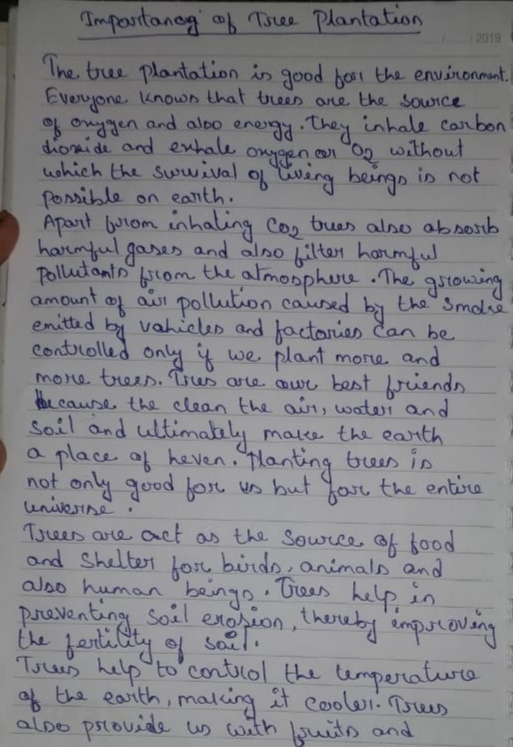 Importancy of Tree Plantation
2019
The tree plantation is good for the environment.
Everyone knows that trees are the source
of oxygen and also energy. They inhale carbon
dioxide and exhale oxygen or O2 without
which the survival of living beings is not
possible on earth.
Apart from inhaling CO2 trees also absorb
harmful gases and also filter harmful
pollutants from the atmosphere. The growing
amount of air pollution caused by the smoke
emitted by vahicles and factories can be
controlled only if we plant more and
more trees. Trees are our best friends
because the clean the air, water and
soil and ultimately make the earth
a place of heven. Planting trees is
not only good for us but for the entire
universe.
Trees are act as the source of food
and shelter for birds, animals and
also human beings. Trees help in
preventing soil erosion, thereby improving
the fertility of soil.
Trees help to control the temperature
of the earth, making it cooler. Trees
also provide us with fruits and